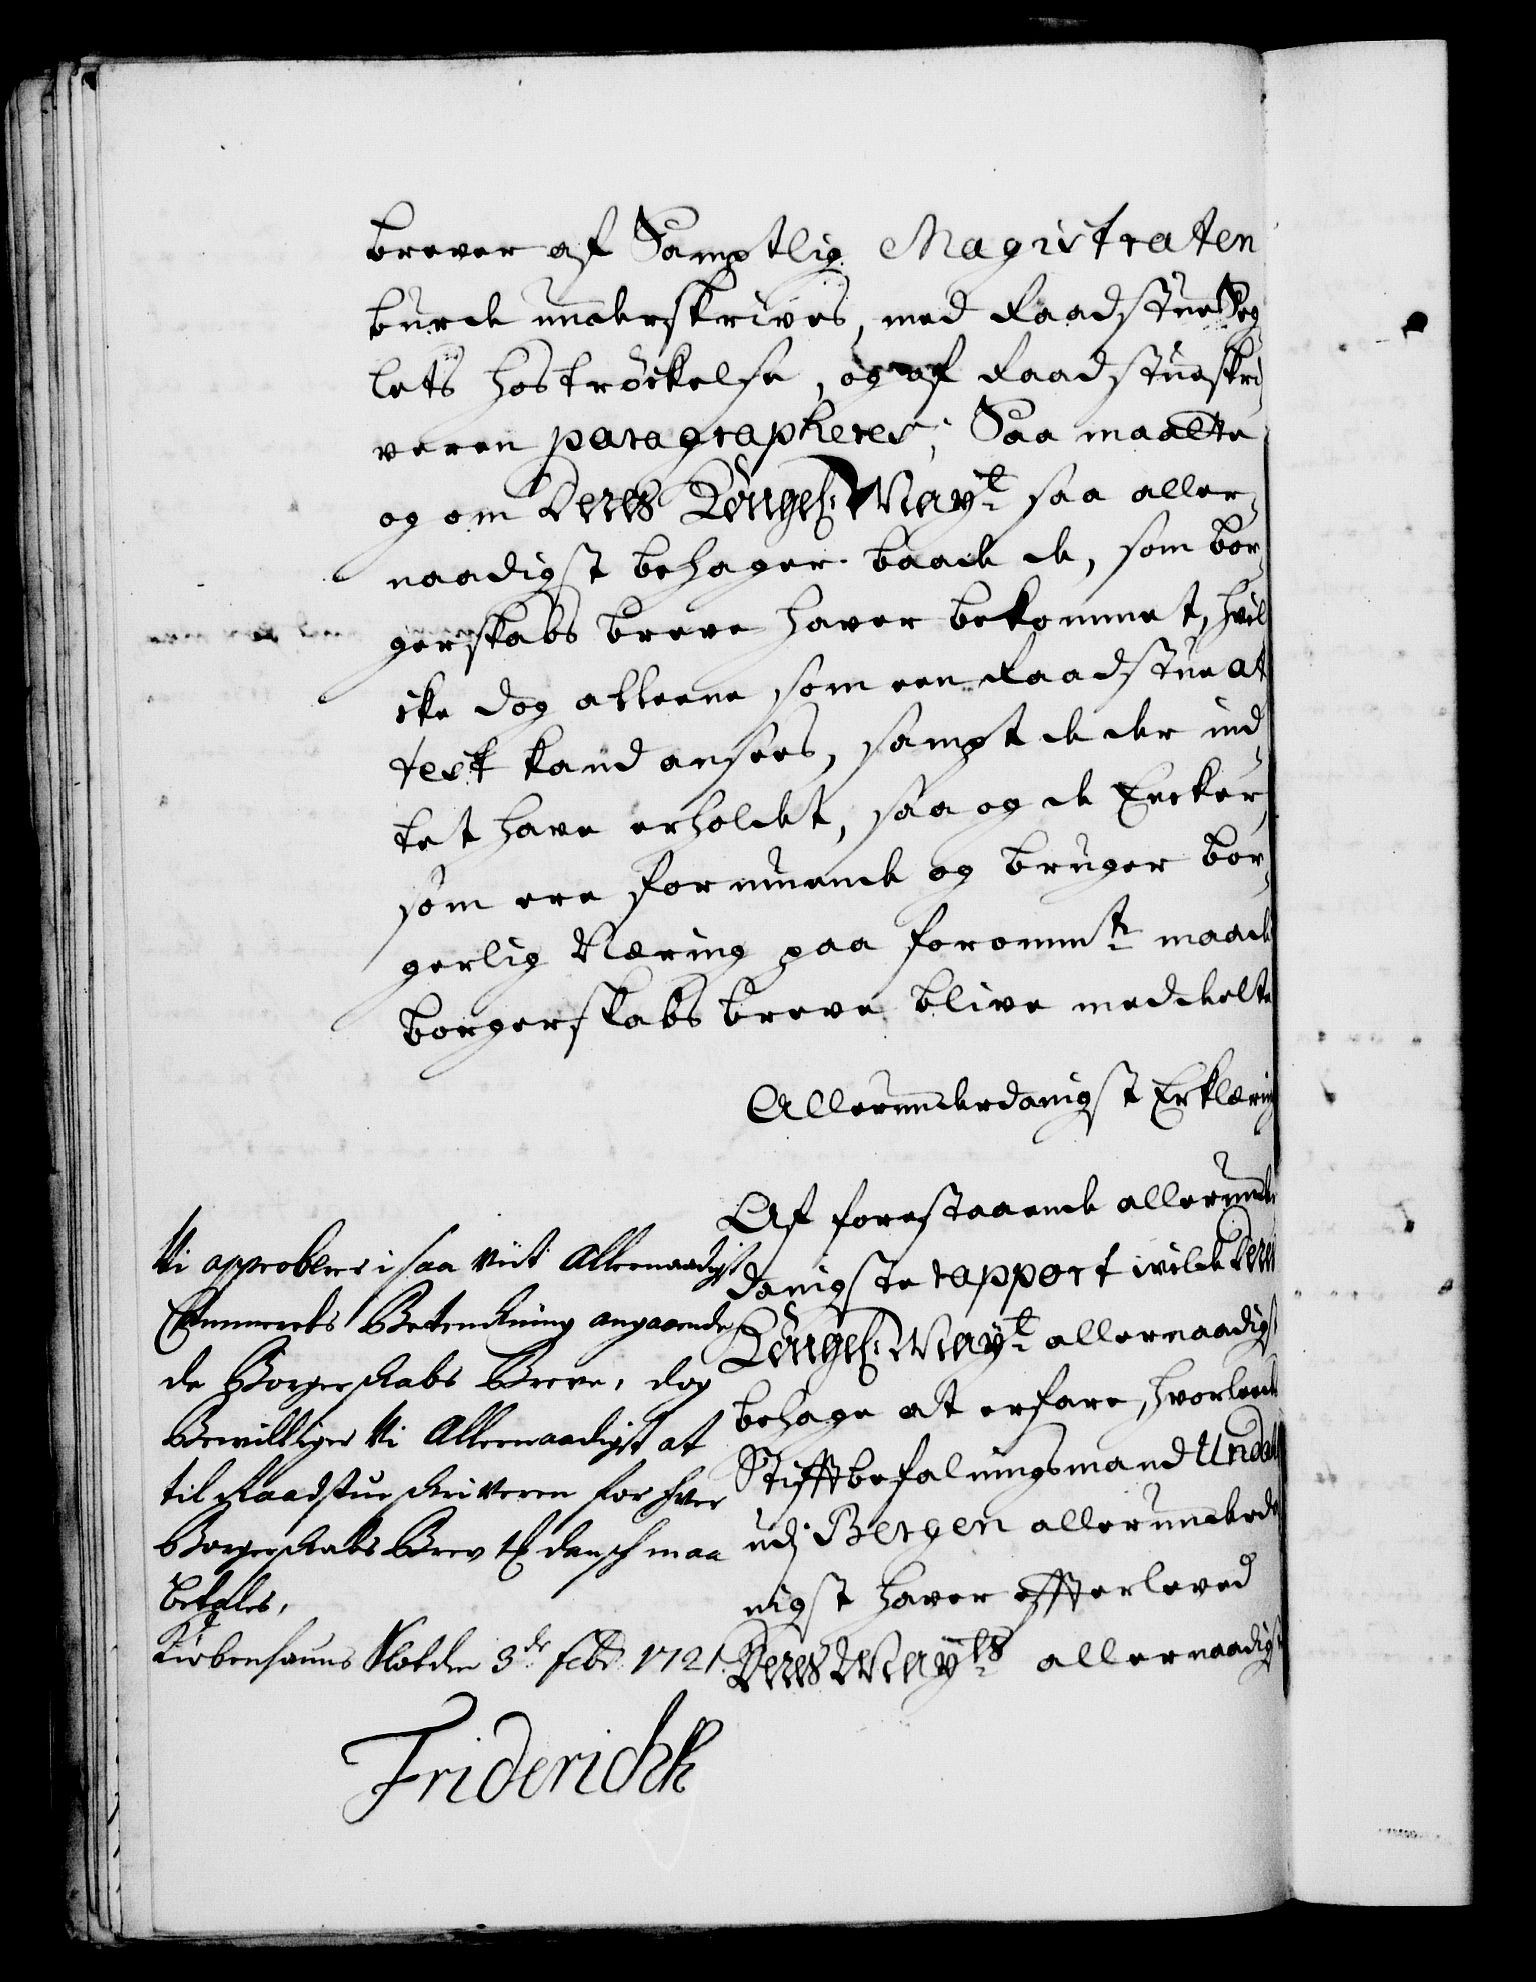 brever af Samptlig Magistraten
burde underskrives, med Raadstue Seg
lets hostrøckelse, og af Raadstueskri
veren paragrapheres; Saa maatte
og om Deres Kongel: Mayt saa aller
naadigst behager baade de, som bor
gerskabs breve haver bekommet, hvil
cke dog alleene som een Raadstue at
test kand ansees, sampt de der ind
tet have erholdet, saa og de Encker,
som ere formuende og bruger bor
gerlig Næring paa forommte maade
borgerskabs breve blive meddelte
Allerunderdanigst Erklæring
Af forestaaende allerunder
danigste rapport vilde Deres
Kongel: Mayt allernaadigst
behage at erfare, hvorleedes
Stifftbefalningsmand Undall
udj Bergen allerunderda
nigst haver effterleved
Deres Mayts allernaadigst
Vi approberer i saa viit Allernaadigst
Cammerets Betenckning angaaende
de Borgerskabs Breve, dog
Bevilliger Vi Allernaadigst at
til Raadstueskriveren for hver
Borgerskabs Brev 1 dansk maa
betales,
Kiøbenhauns Slot den 3de Febr: 1721.
Friderich R